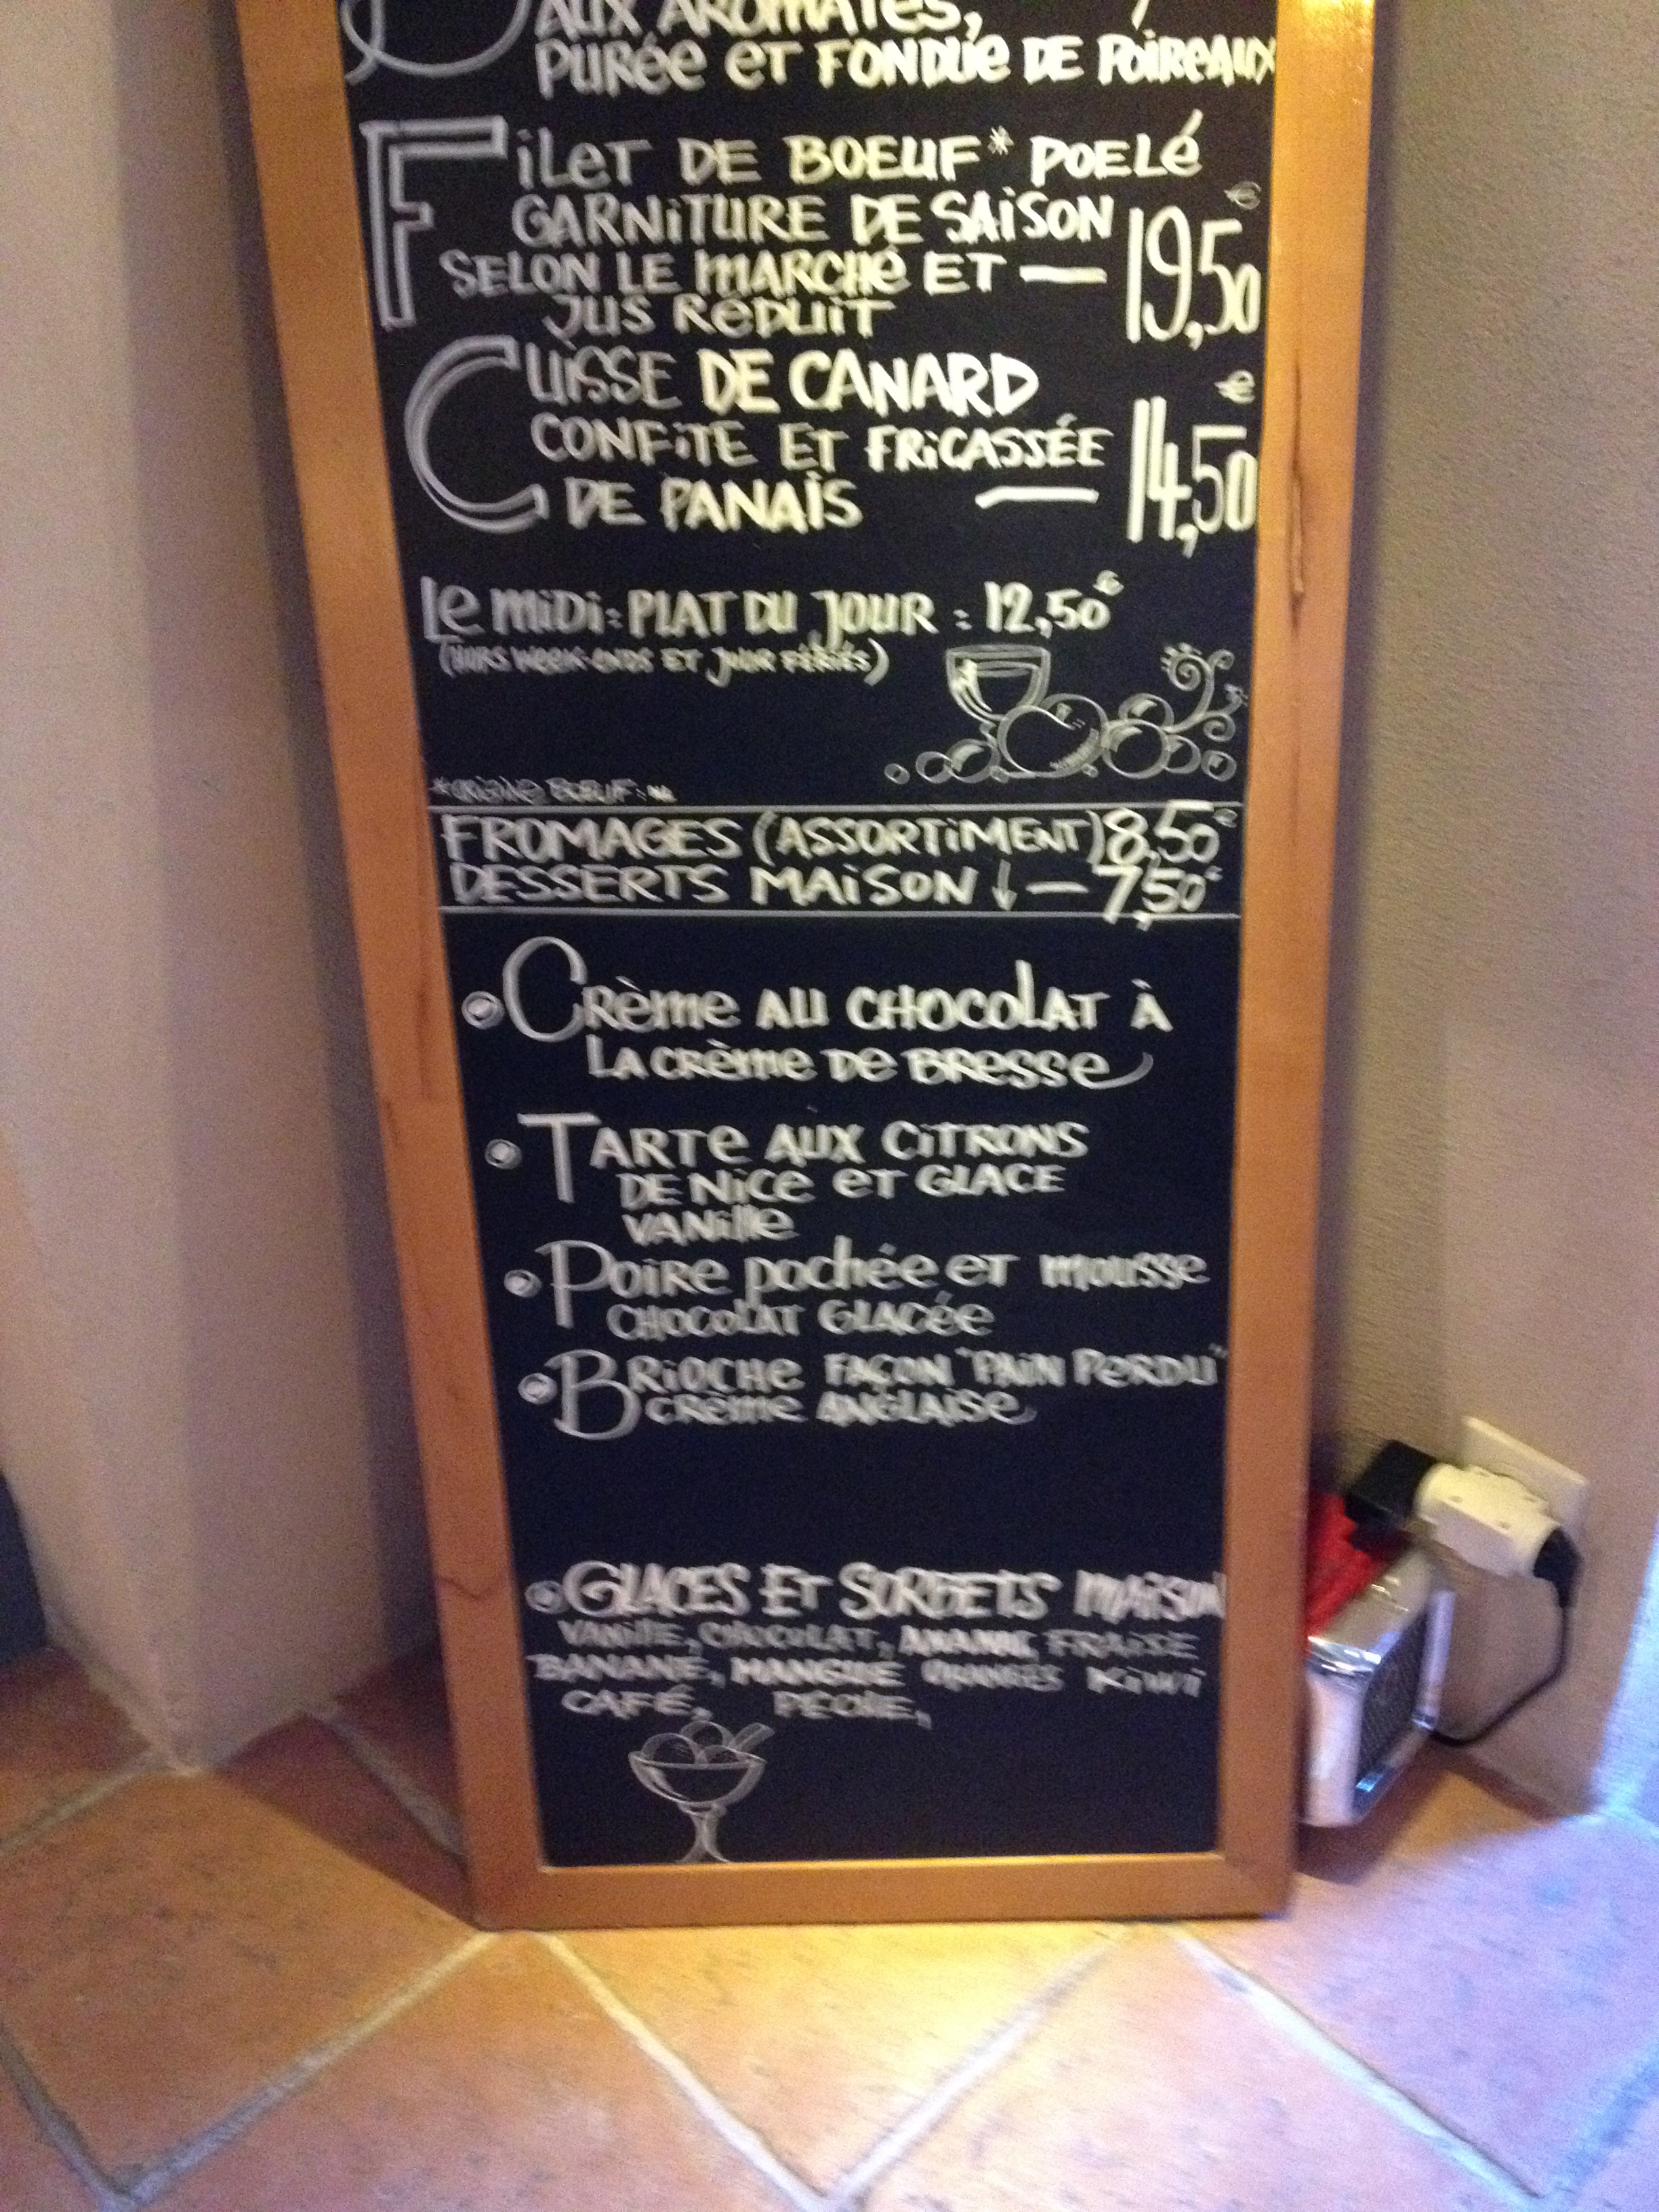 AUX AROMATES,
PURée eT FONDUe DE POiReAUX
FiLeT DE BOEUF* POELé
GARNiTURE DE SAiSON
SELON LE MARCHé ET — 19,50 €
JUS ReDUiT
CUiSSE DE CANARD
CONFiTE ET FRiCASSÉE
DE PANAiS — 14,50 €
Le MiDi : PLAT DU JOUR : 12,50 €
(HORS WeeK-eNDS ET JOUR FéRiéS)
*ORiGiNe BOEUF :
FROMAGES (ASSORTiMENT) 8,50 €
DESSERTS MAiSON ↓ — 7,50 €
• Crème AU CHOCOLAT À
LA CRème De BResse
• TARTe AUX CiTRONS
DE NiCe eT GLACE
VANille
• POiRe pochée eT mousse
CHOCOLAT GLACée
• BRiOCHe FAÇON "PAiN PeRDU"
CRème ANGLAiSe
• GLACES ET SORBETS MAiSON
VANiLLE, CHOCOLAT, ANANAS, FRAiSE
BANANE, MANGUE ORANGES KiWi
CAFÉ, PECHE,